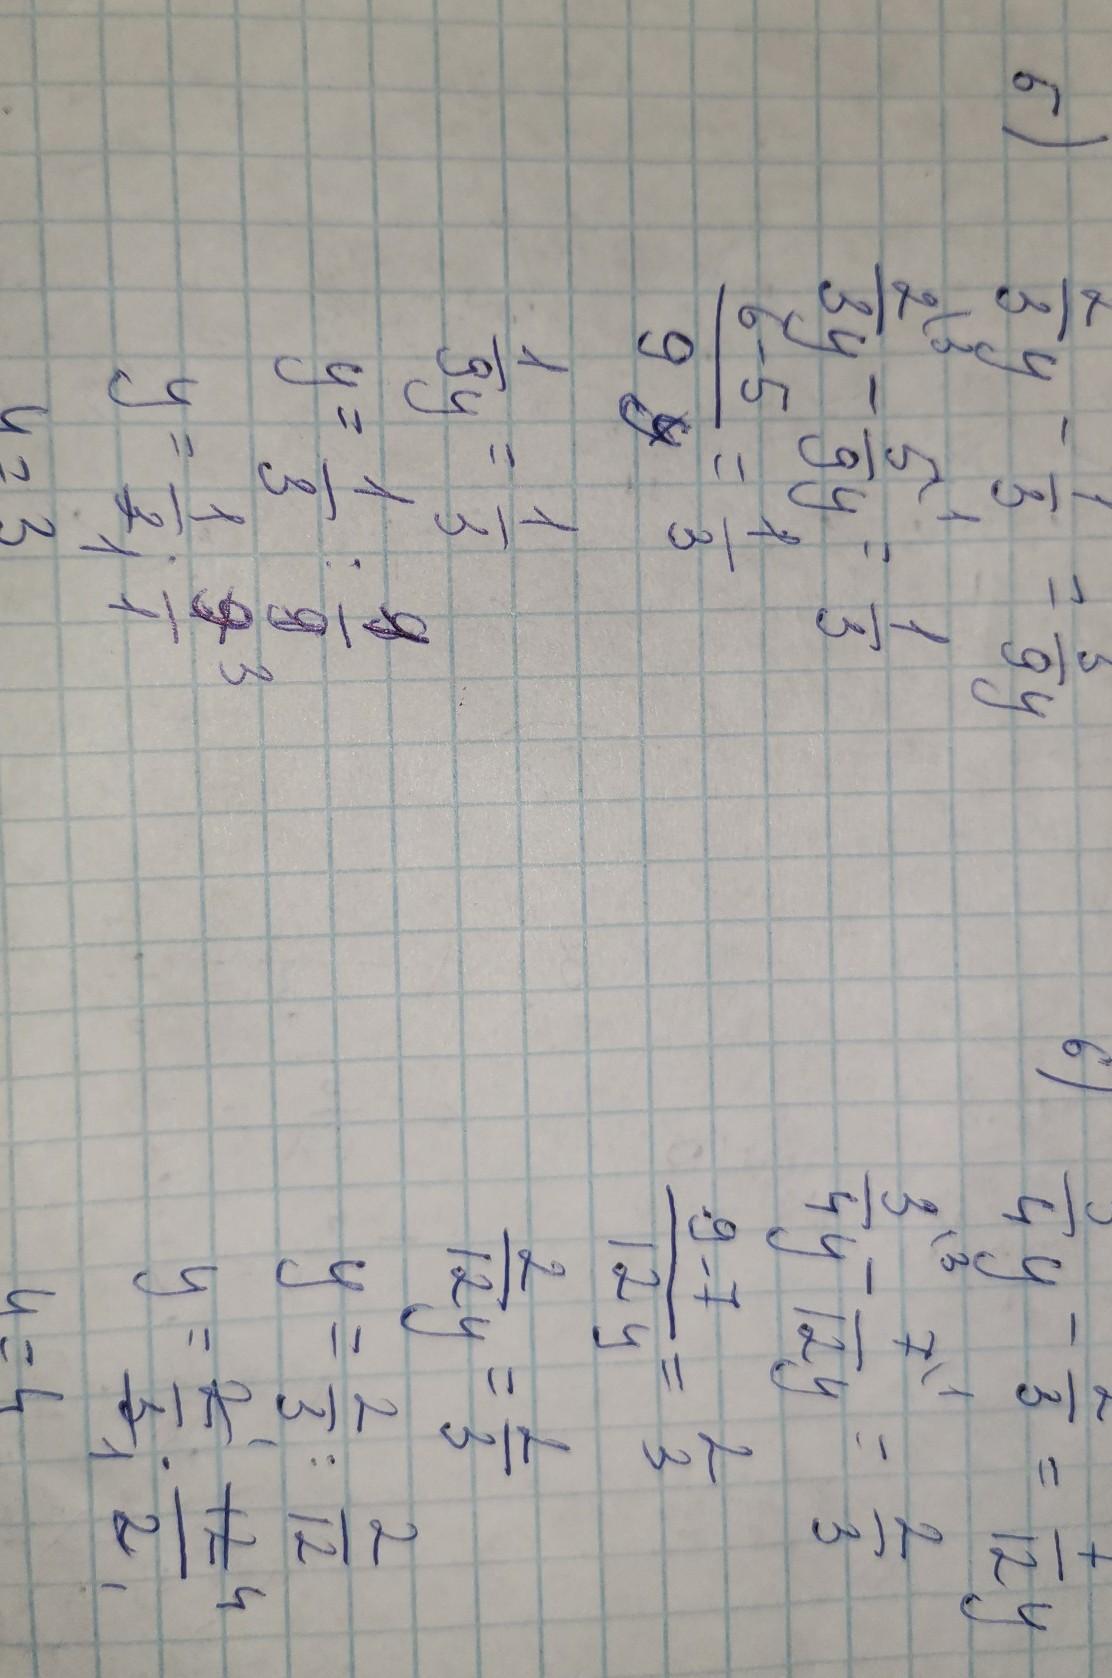 б)
2/3 y - 1/3 = 5/9 y
2\3/3 y - 5\1/9 y = 1/3
6-5/9 y = 1/3
1/9 y = 1/3
y = 1/3 : 1/9
y = 1/3 1 · 9 3/1
y = 3
в)
3/4 y - 2/3 = 7/12 y
3\3/4 y - 7\1/12 y = 2/3
9-7/12 y = 2/3
2/12 y = 2/3
y = 2/3 : 2/12
y = 2 1/3 1 · 12 4/2 1
y = 4